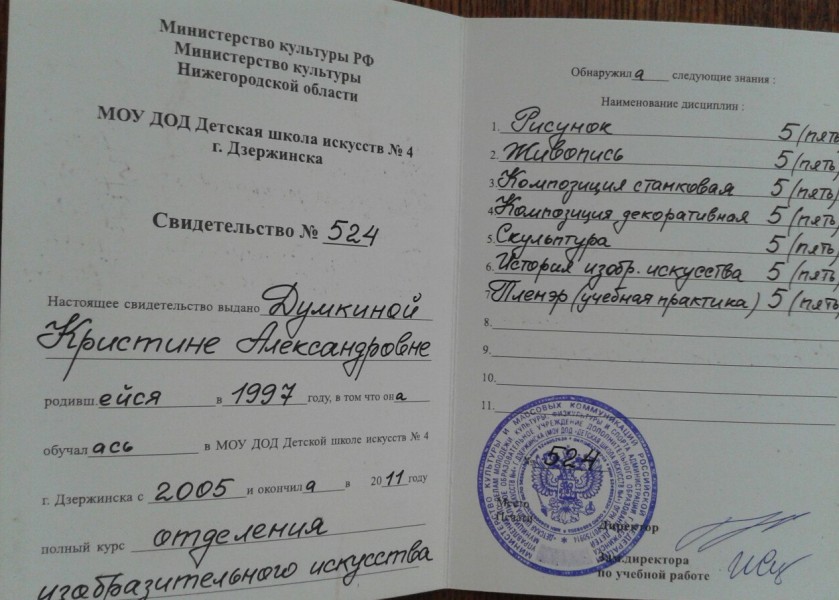 Министерство культуры РФ
Министерство культуры
Нижегородской области
МОУ ДОД Детская школа искусств № 4
г. Дзержинска
Свидетельство № 524
Настоящее свидетельство выдано Думкиной
Кристине Александровне
родивш.ейся в 1997 году, в том что она
обучалась в МОУ ДОД Детской школе искусств № 4
г. Дзержинска с 2005 и окончила в 2011 году
полный курс отделения
изобразительного искусства
Обнаружила следующие знания :
Наименование дисциплин :
1. Рисунок 5 (пять
2. Живопись 5 (пять)
3. Композиция станковая 5 (пять)
4. Композиция декоративная 5 (пять)
5. Скульптура 5 (пять)
6. История изобр. искусства 5 (пять)
7. Пленэр (учебная практика) 5 (пять)
8.
9.
10.
11.
524
Место
Печати
Директор
Зам.директора
по учебной работе